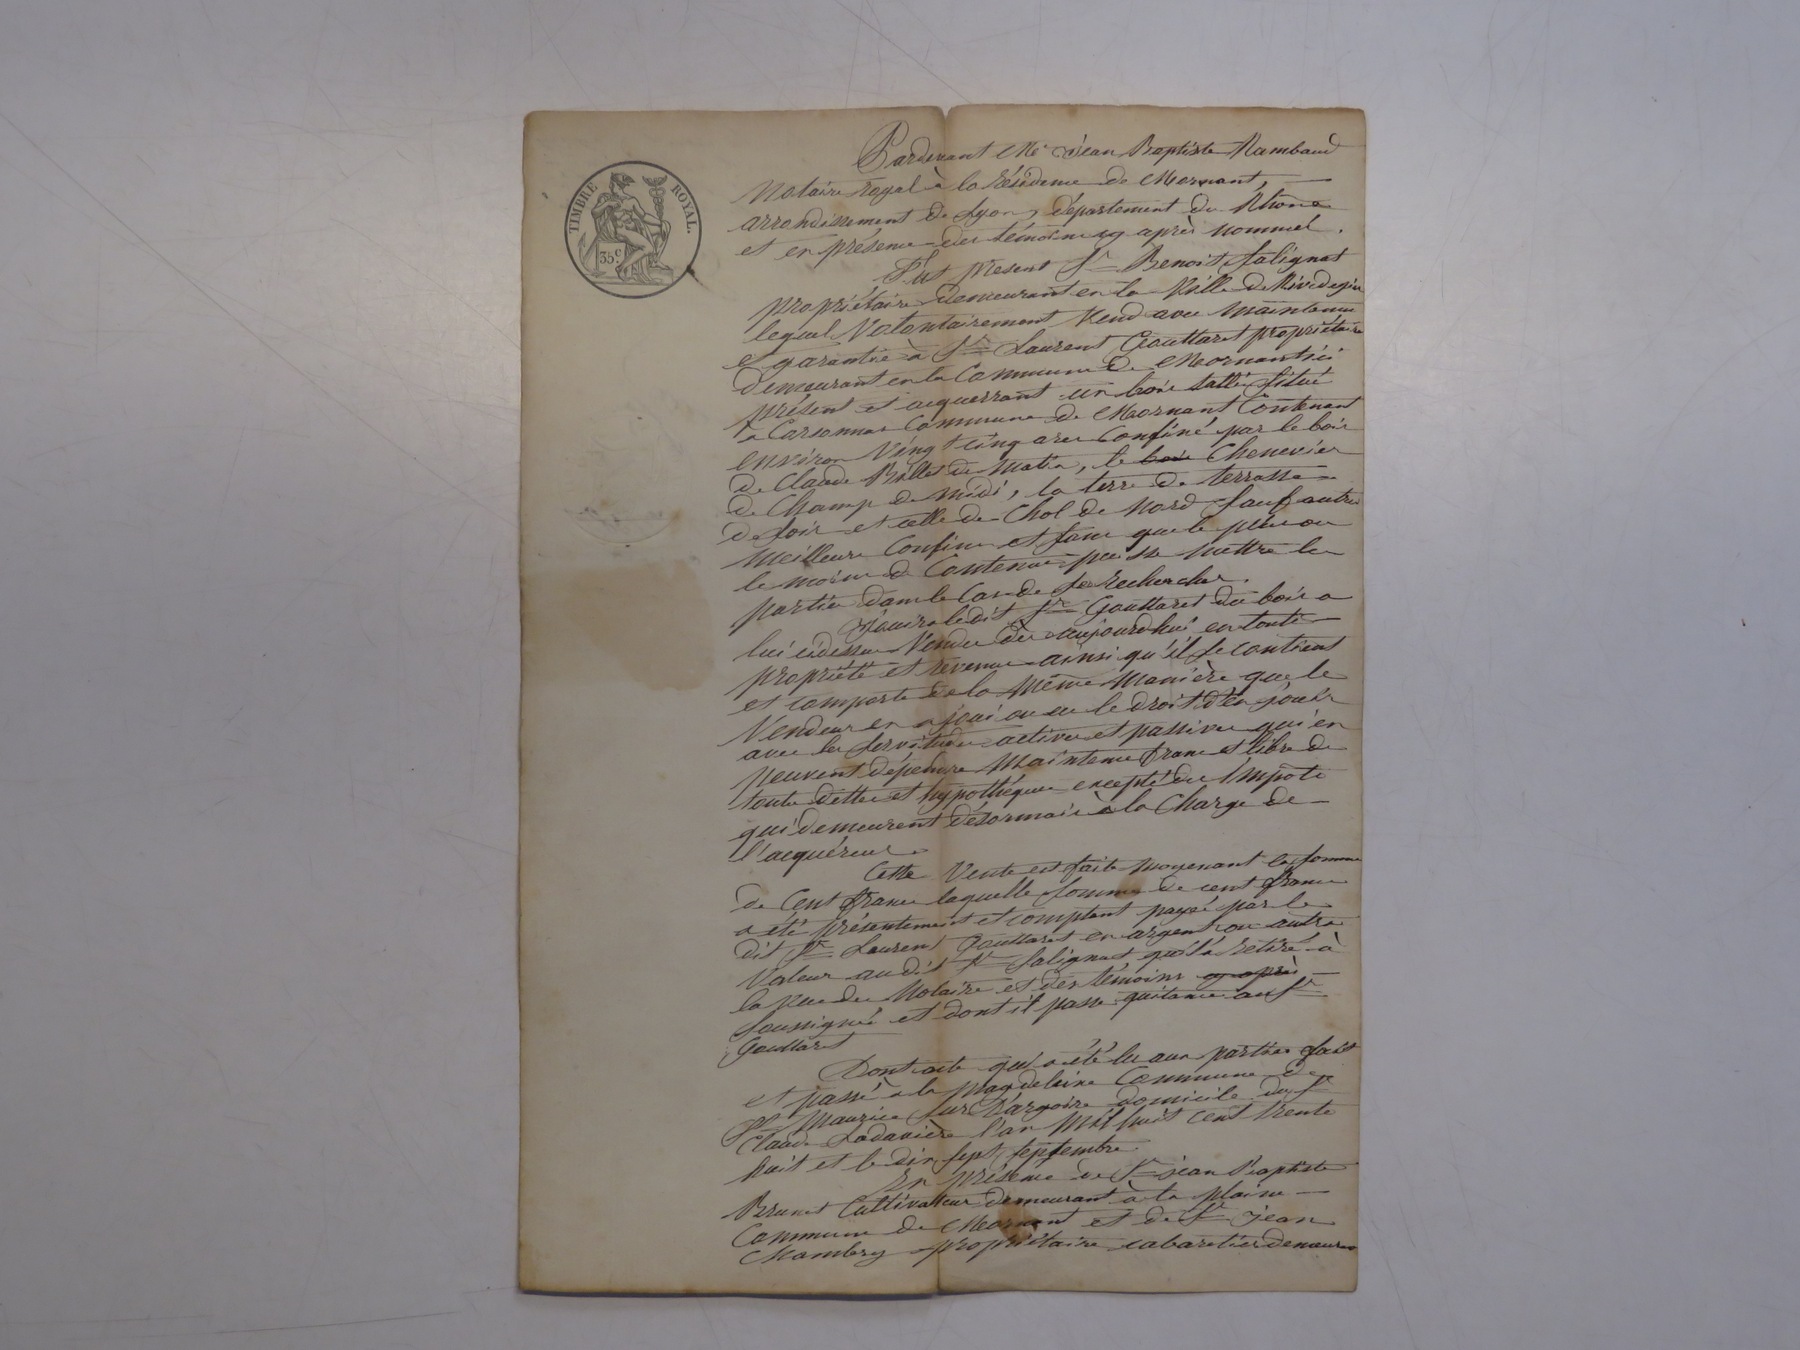 TIMBRE ROYAL.
35c.
Pardevant Me Jean Baptiste Rambaud
Notaire royal à la résidence de Mornant,
arrondissement de Lyon, département du Rhône
et en présence des témoins cy après nommés.
Fut présent Sr Benoit Salignat
propriétaire demeurant en la Ville de Rivedegier
lequel Volontairement Vend avec maintenue
et garantie à Sr Laurent Gouttaret propriétaire
demeurant en la Commune de Mornant ici
présent et acquerrant un bois taillis situé
à Corsonnas Commune de Mornant Contenant
environ Vingt cinq ares Confiné par le bois
de Claude de Matin, le bois Chenevier
de Champ de midi, la terre de terrasse
de soir et celle de Chol de Nord sauf autres
meilleurs Confins et sans que le plus ou
le moins de Contenue puisse mettre les
parties dans le Cas de se rechercher.
Jouira ledit Sr Gouttaret du bois a
lui cidessus Vendu dès aujourdhui en toute
propriété et revenus ainsi qu'il se contient
et comporte de la même manière que le
Vendeur en a joui ou eu le droit d'en jouir
avec les servitudes actives et passives qui en
peuvent dépendre Maintenu franc et libre de
toute dettes et hypothéques excepté des Impots
qui demeurent désormais à la Charge de
l'acquéreur.
Cette Vente est faite moyenant la somme
de Cent francs laquelle somme de cent francs
a été présentement et comptant payée par le
dit Sr Laurent Gouttaret en argent ou autre
Valeur audit Sr Salignat qui l'a retiré à
la Vue du Notaire et des témoins cy après
soussignés et dont il passe quitance au Sr
Gouttaret
Dont acte qui a été lu aux parties fait
et passé à la Magdeleine Commune de
St Maurice sur D'argoire domicile du Sr
Claude l'an Mil huit cent trente
huit et le dix sept septembre
En présence de Sr jean Baptiste
Brunet Cultivateur demeurant à la plaine
Commune de Mornant et de Sr jean
Chambry propriétaire cabaretier demeurant